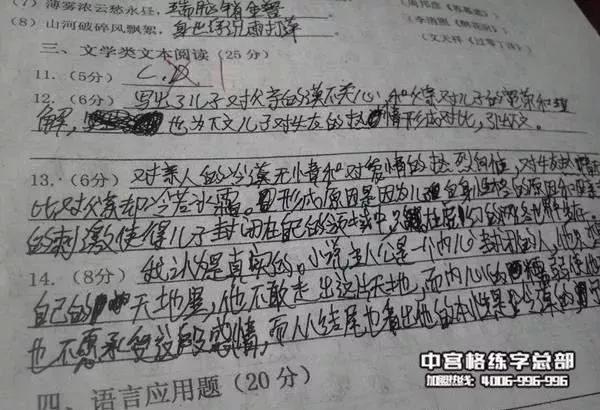 (7) 薄雾浓云愁永昼，瑞脑销金兽
(8) 山河破碎风飘絮，身世浮沉雨打萍
(周邦彦《苏幕遮》)
(李清照《醉花阴》)
(文天祥《过零丁洋》)
三、文学类文本阅读(25分)
11. (5分) C.D
12. (6分) 写出了儿子对父亲的漠不关心，和父亲对儿子的宽容和理
解，也为下文儿子对女友的热情形成对比，引出下文。
13. (6分) 对亲人的冷漠无情和对爱情的热烈向往，对女友
比对父亲却冷若冰霜。形成原因是因为儿子自身性格的原因和
的刺激使得儿子封闭在自己的 中，只 在 的网络世界
14. (8分) 我认为是真实的。小说主人公是一个内心封闭的人，他
自己的 天地里，他不敢走出这片天地，而内心的 使他
也不愿承受这段感情，而从小结尾也看出他的本性是 冷漠的
四、语言应用题(20分)
中宫格练字总部
加盟热线: 4006-996-996